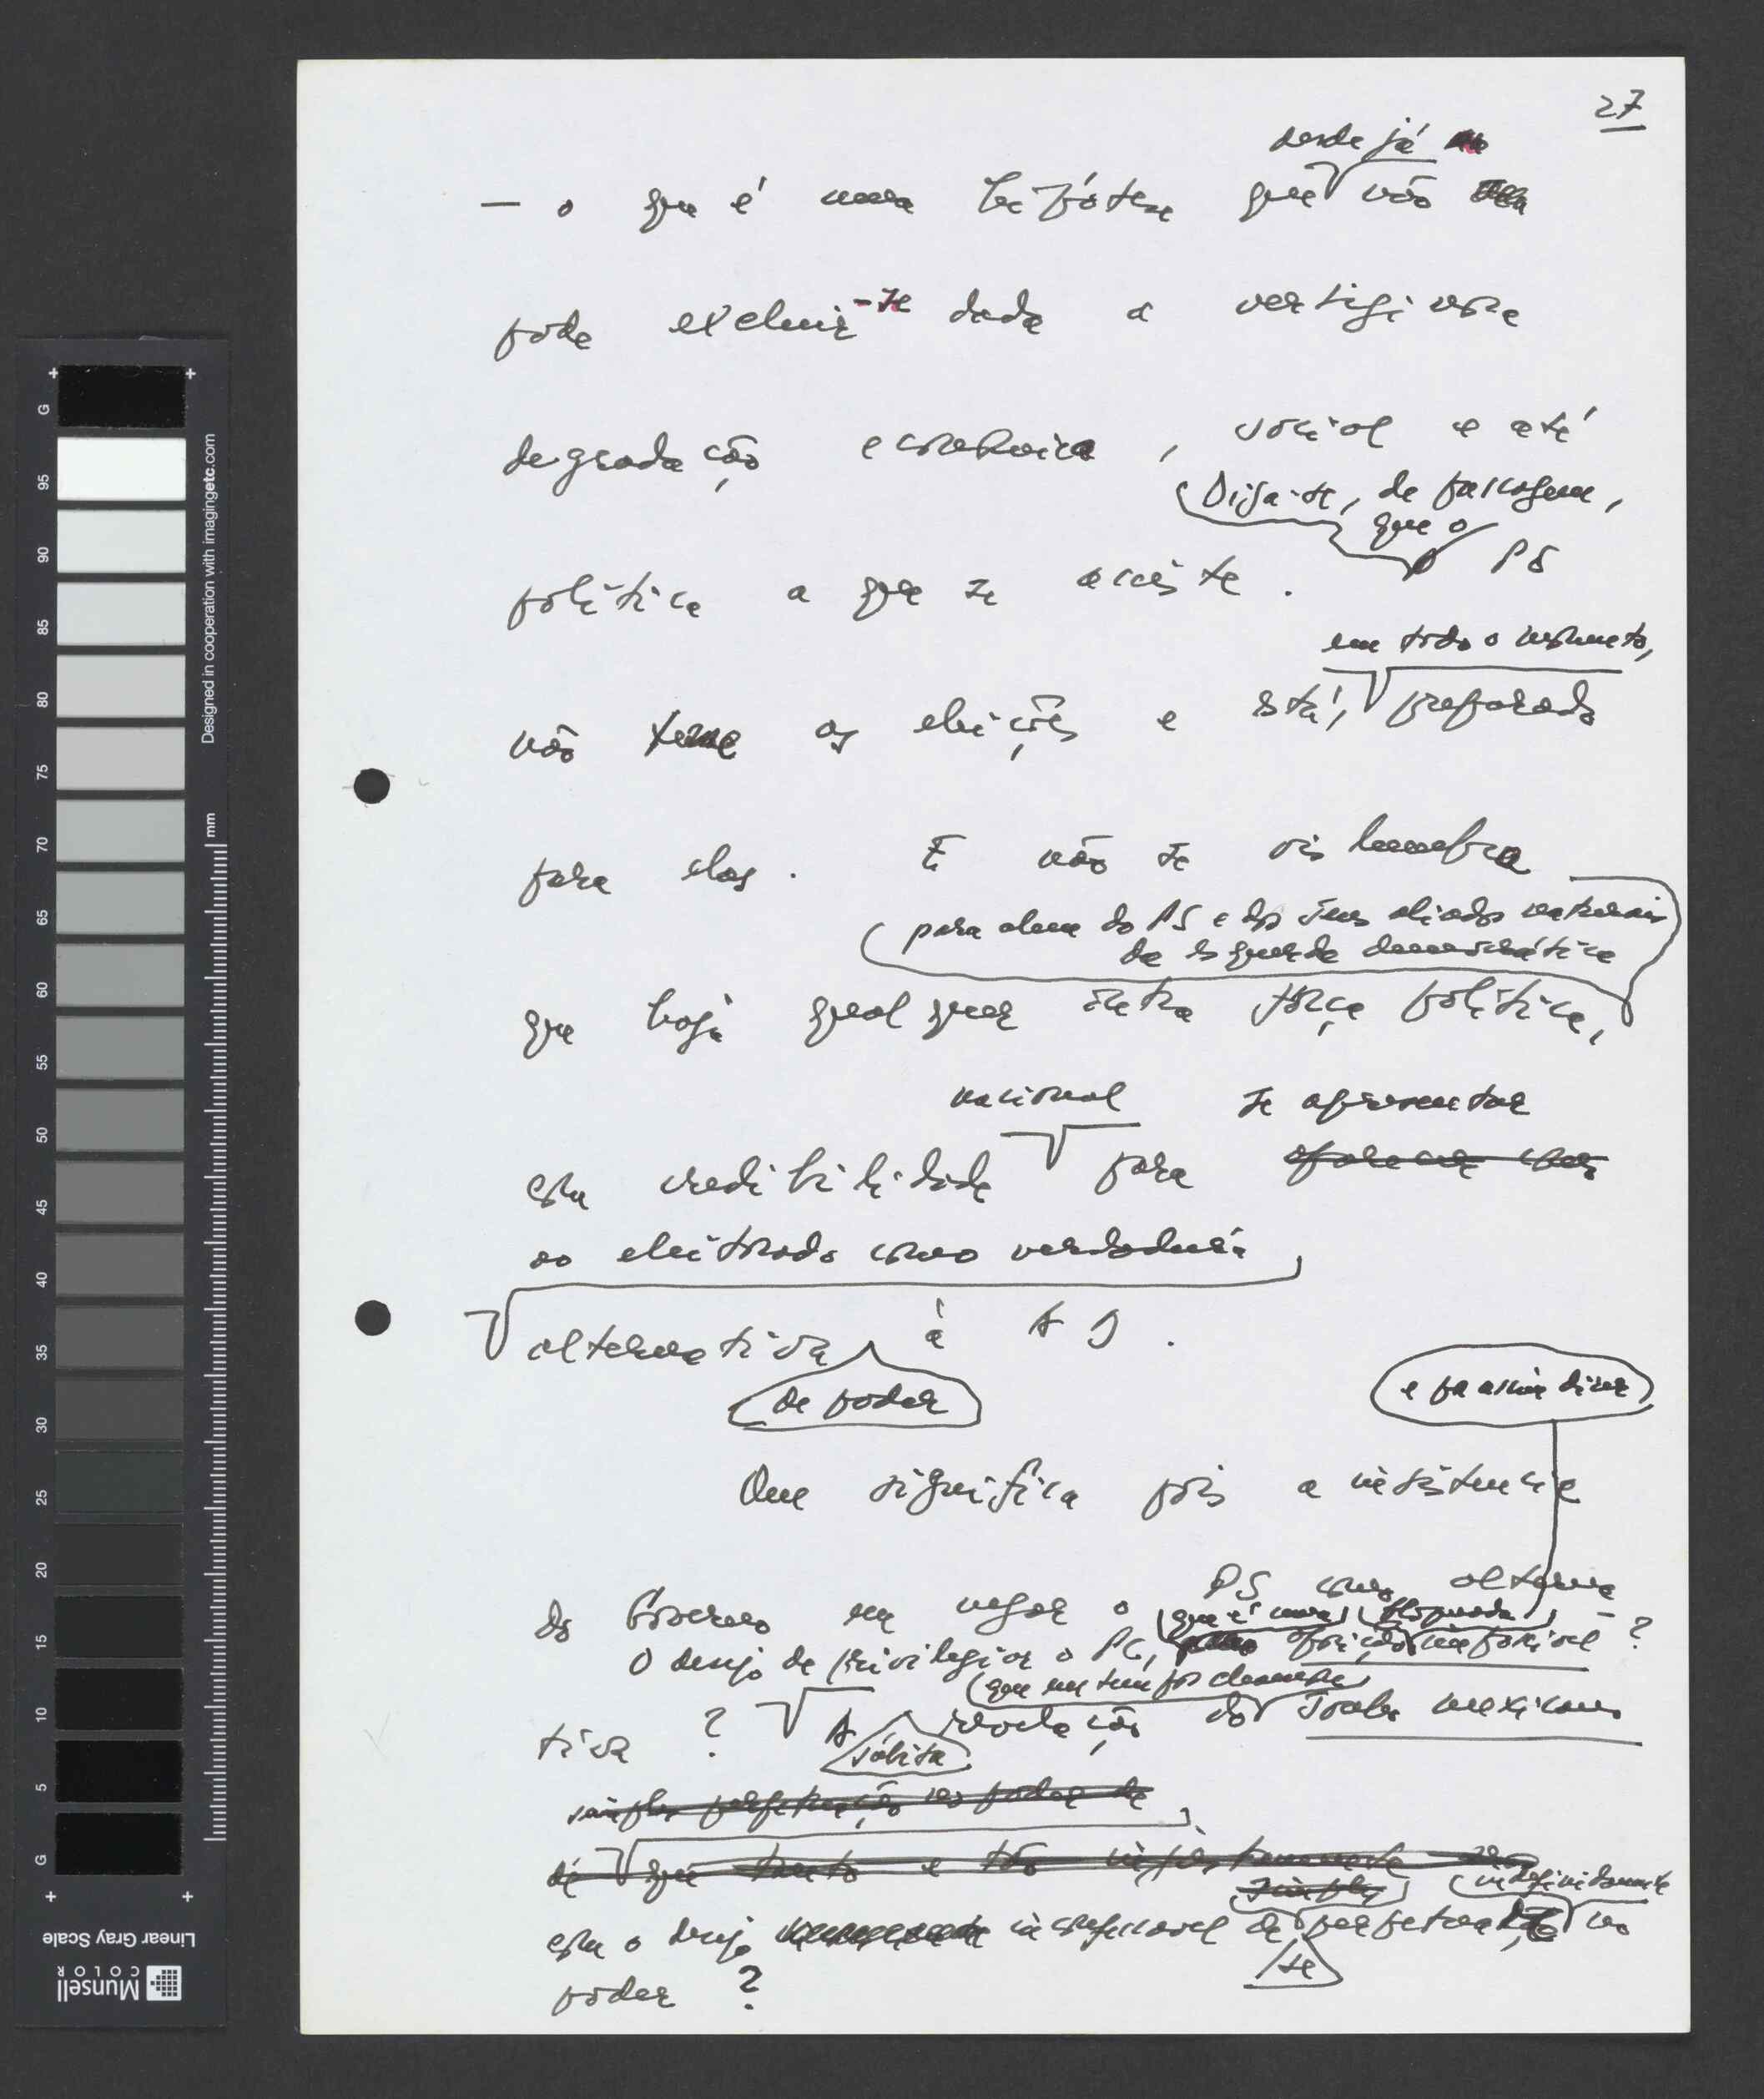 27
desde já
— o que é uma hipótese que não
pode excluir-se dada a vertiginosa
degradação económica, social e até
Diga-se, de passagem,
que o
política a que se assiste. PS
em todo o momento,
não teme as eleições e está, preparado
para elas. E não se vislumbra
para além do PS e dos seus aliados naturais
da esquerda democrática
que haja qualquer outra força política,
nacional se apresentar
com credibilidade para
ao eleitorado como verdadeira
alternativa à AD.
de poder
e por assim dizer
Que significa pois a insistência
do Governo em negar o PS como alterna-
que é uma
O desejo de privilegiar o PC, oposição impossível?
que nem tem por
tiva? A revelação do mexicano
súbita
simples perpetuação no poder de
de que tanto e tão
simples indefinidamente
com o desejo inconfessável de perpetuar no
se
poder?
Designed in cooperation with imagingetc.com
mm
G
95
90
85
80
75
70
65
60
55
50
45
40
35
30
25
20
15
10
5
G
Linear Gray Scale
Munsell
COLOR